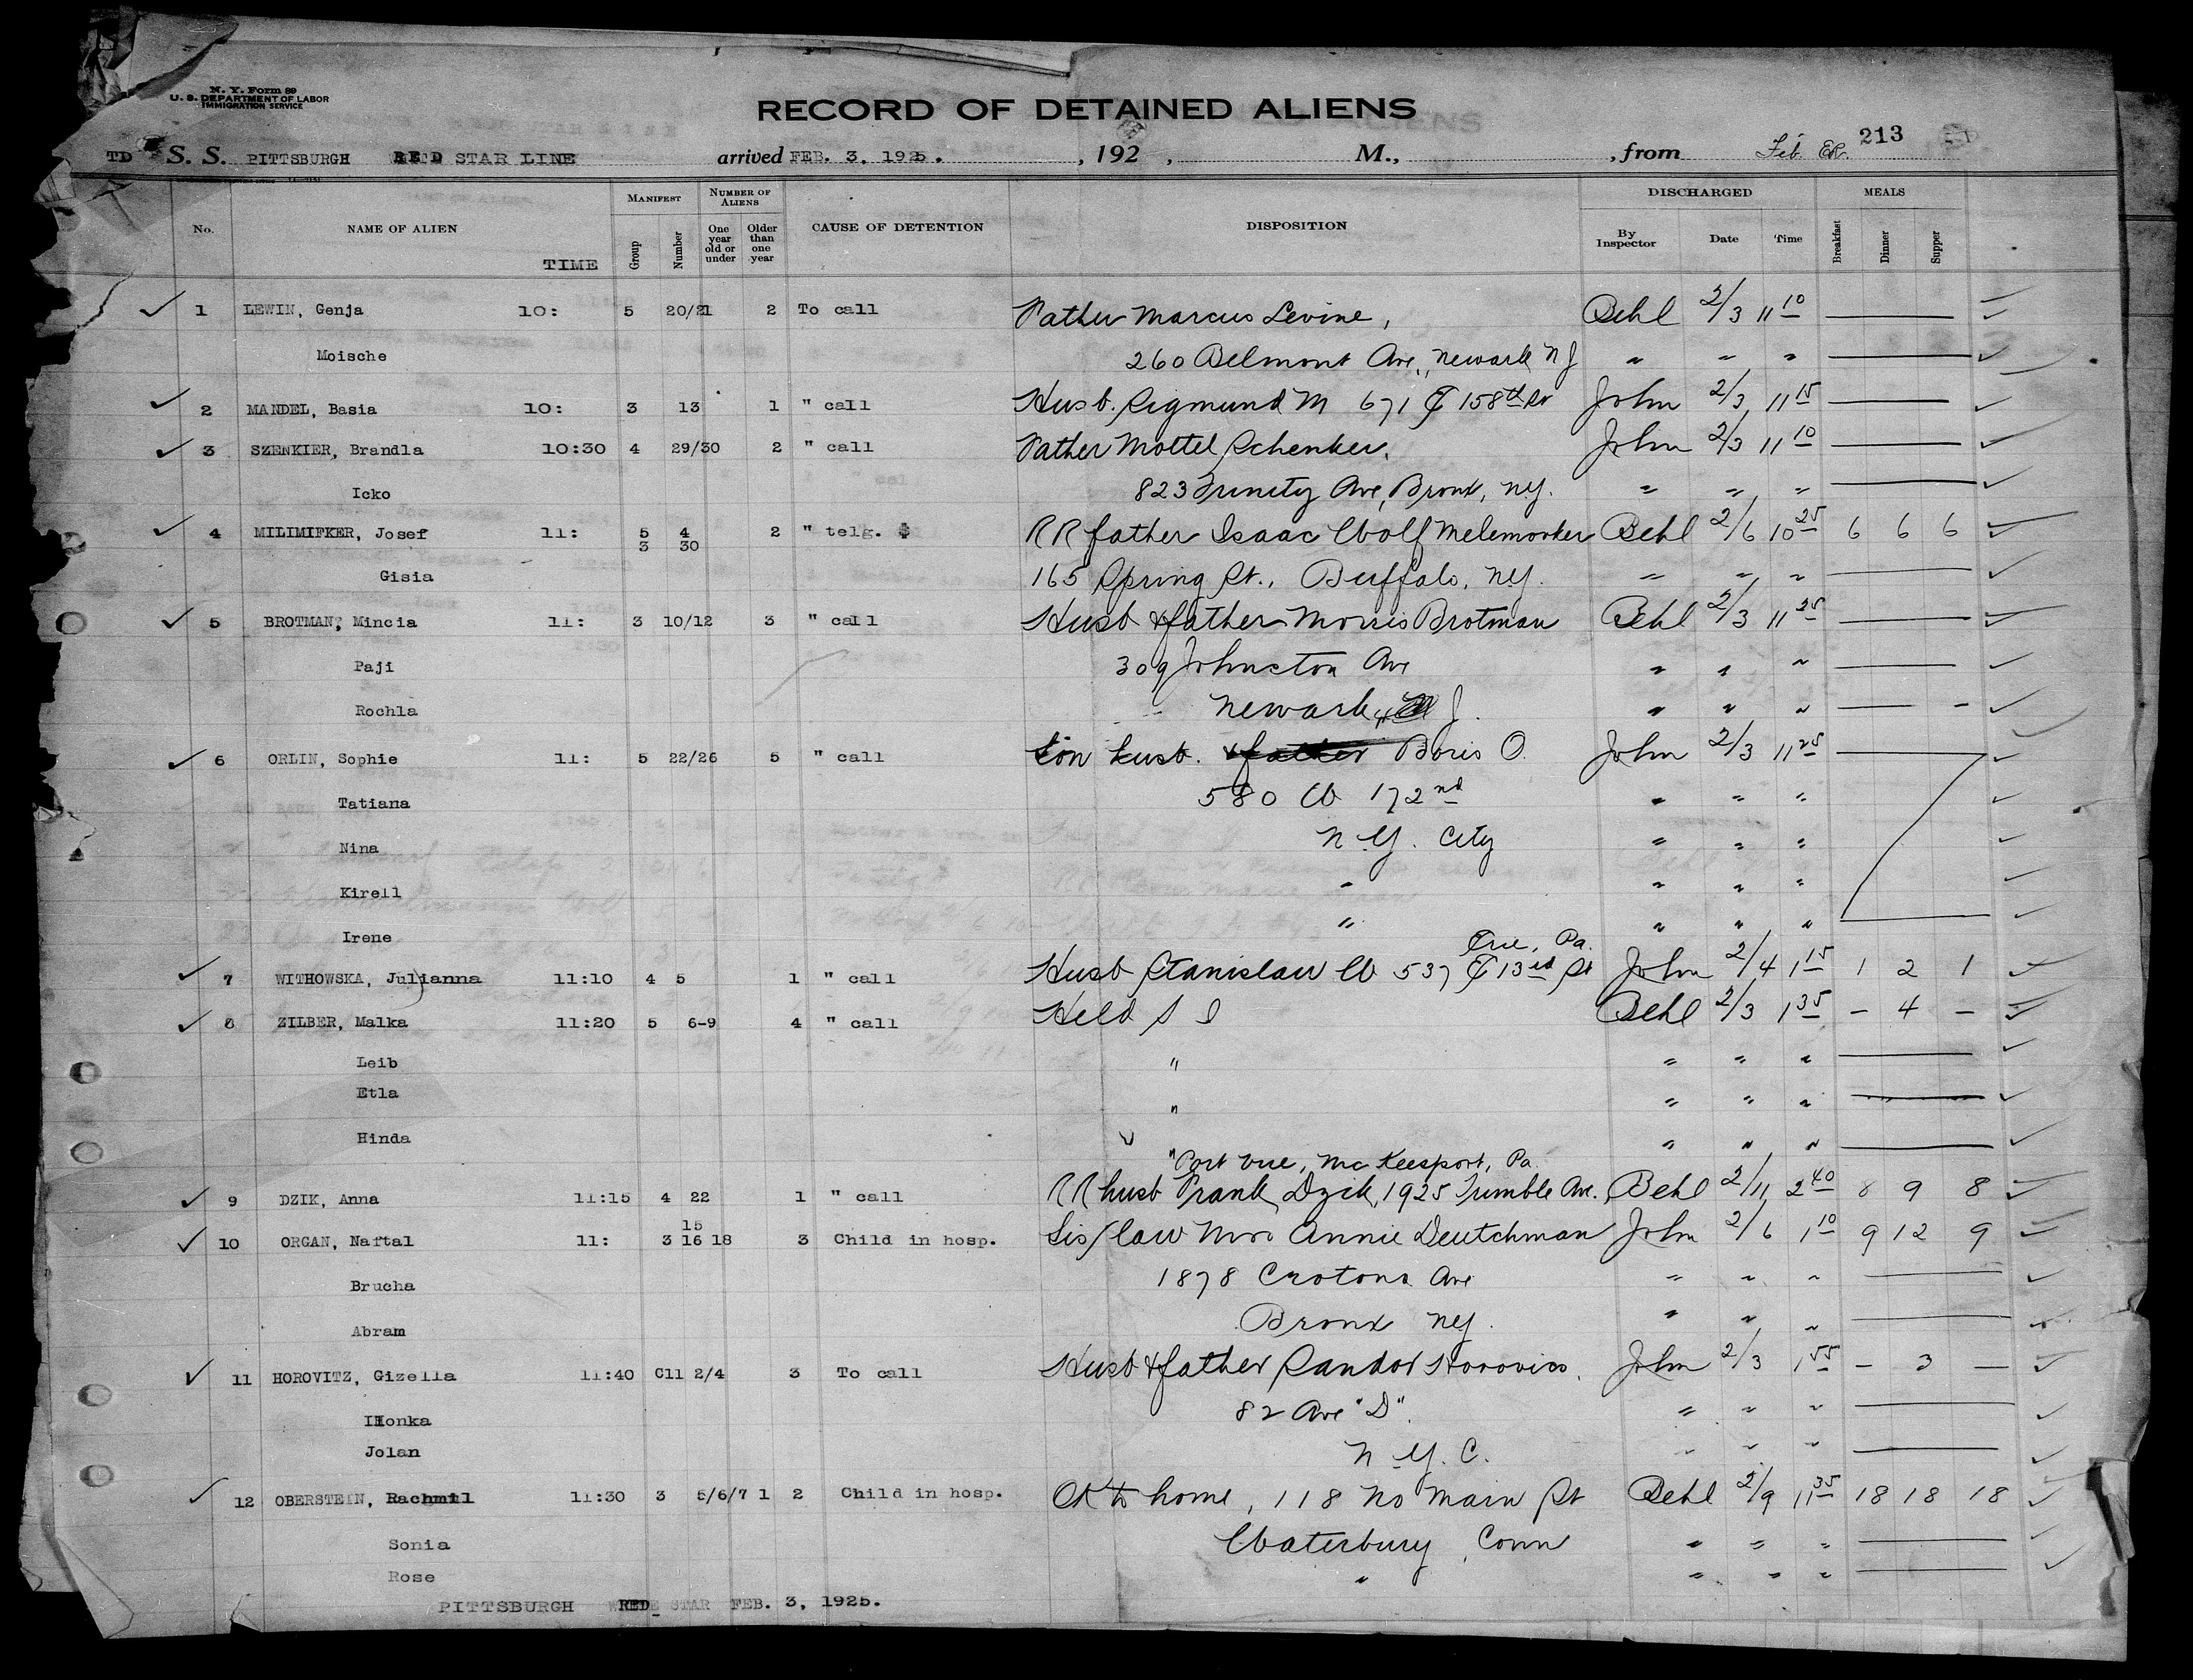 N. Y. Form 89
U. S. DEPARTMENT OF LABOR
IMMIGRATION SERVICE
RECORD OF DETAINED ALIENS
213
TD S. S. PITTSBURGH RED STAR LINE arrived FEB. 3, 1925. , 192 , M., , from Feb.
No. NAME OF ALIEN TIME MANIFEST Group Number NUMBER OF ALIENS One year old or under Older than one year CAUSE OF DETENTION DISPOSITION DISCHARGED By Inspector Date Time MEALS Breakfast Dinner Supper
1 LEWIN, Genja 10: 5 20/21 2 To call Father Marcus Levine, Behl 2/3 11 10
Moische 260 Belmont Ave., Newark NJ " " "
2 MANDEL, Basia 10: 3 13 1 " call Husb. Sigmund M 671 E 158th St John 2/3 11 15
3 SZENKIER, Brandla 10:30 4 29/30 2 " call Father Mottel Schenker, John 2/3 11 10
Icko 823 Trinity Ave, Bronx, NY. " " "
4 MILIMIFKER, Josef 11: 5 4 2 " telg. $ RR father Isaac Wolf Melemorker Behl 2/6 10 25 6 6 6
3 30
Gisia 165 Spring St., Buffalo, NY. " " "
5 BROTMAN, Mincia 11: 3 10/12 3 " call Husb & father Morris Brotman Behl 2/3 11 25
Paji 309 Johnston Ave " " "
Rochla Newark, N J. " " " — -
6 ORLIN, Sophie 11: 5 22/26 5 " call husb. & father Boris O. John 2/3 11 25
Tatiana 580 W 172nd " " "
Nina N.Y. City " " "
Kirell " " " "
Irene " " " "
Erie, Pa.
7 WITHOWSKA, Julianna 11:10 4 5 1 " call Husb Stanislaw W 537 E 13 St John 2/4 1 15 1 2 1
8 ZILBER, Malka 11:20 5 6-9 4 " call Held S I Behl 2/3 1 35 - 4 -
Leib " " " "
Etla " " " "
Hinda " " " "
Port Vue, McKeesport, Pa.
9 DZIK, Anna 11:15 4 22 1 " call RR husb Frank Dzik, 1925 Trimble Ave. Behl 2/11 2 40 8 9 8
15
10 ORGAN, Naftal 11: 3 16 18 3 Child in hosp. Sis/law Mrs Annie Deutchman John 2/6 1 10 9 12 9
Brucha 1878 Crotona Ave " " "
Abram Bronx NY. " " "
11 HOROVITZ, Gizella 11:40 C11 2/4 3 To call Husb & father Sandor Horovics, John 2/3 1 55 - 3 -
Ilonka 82 Ave "D". " " "
Jolan N.Y.C. " " "
12 OBERSTEIN, Rachmil 11:30 3 5/6/7 1 2 Child in hosp. OK to home, 118 No Main St Behl 2/9 11 35 18 18 18
Sonia Waterbury, Conn " " "
Rose " " " "
PITTSBURGH RED STAR FEB. 3, 1925.